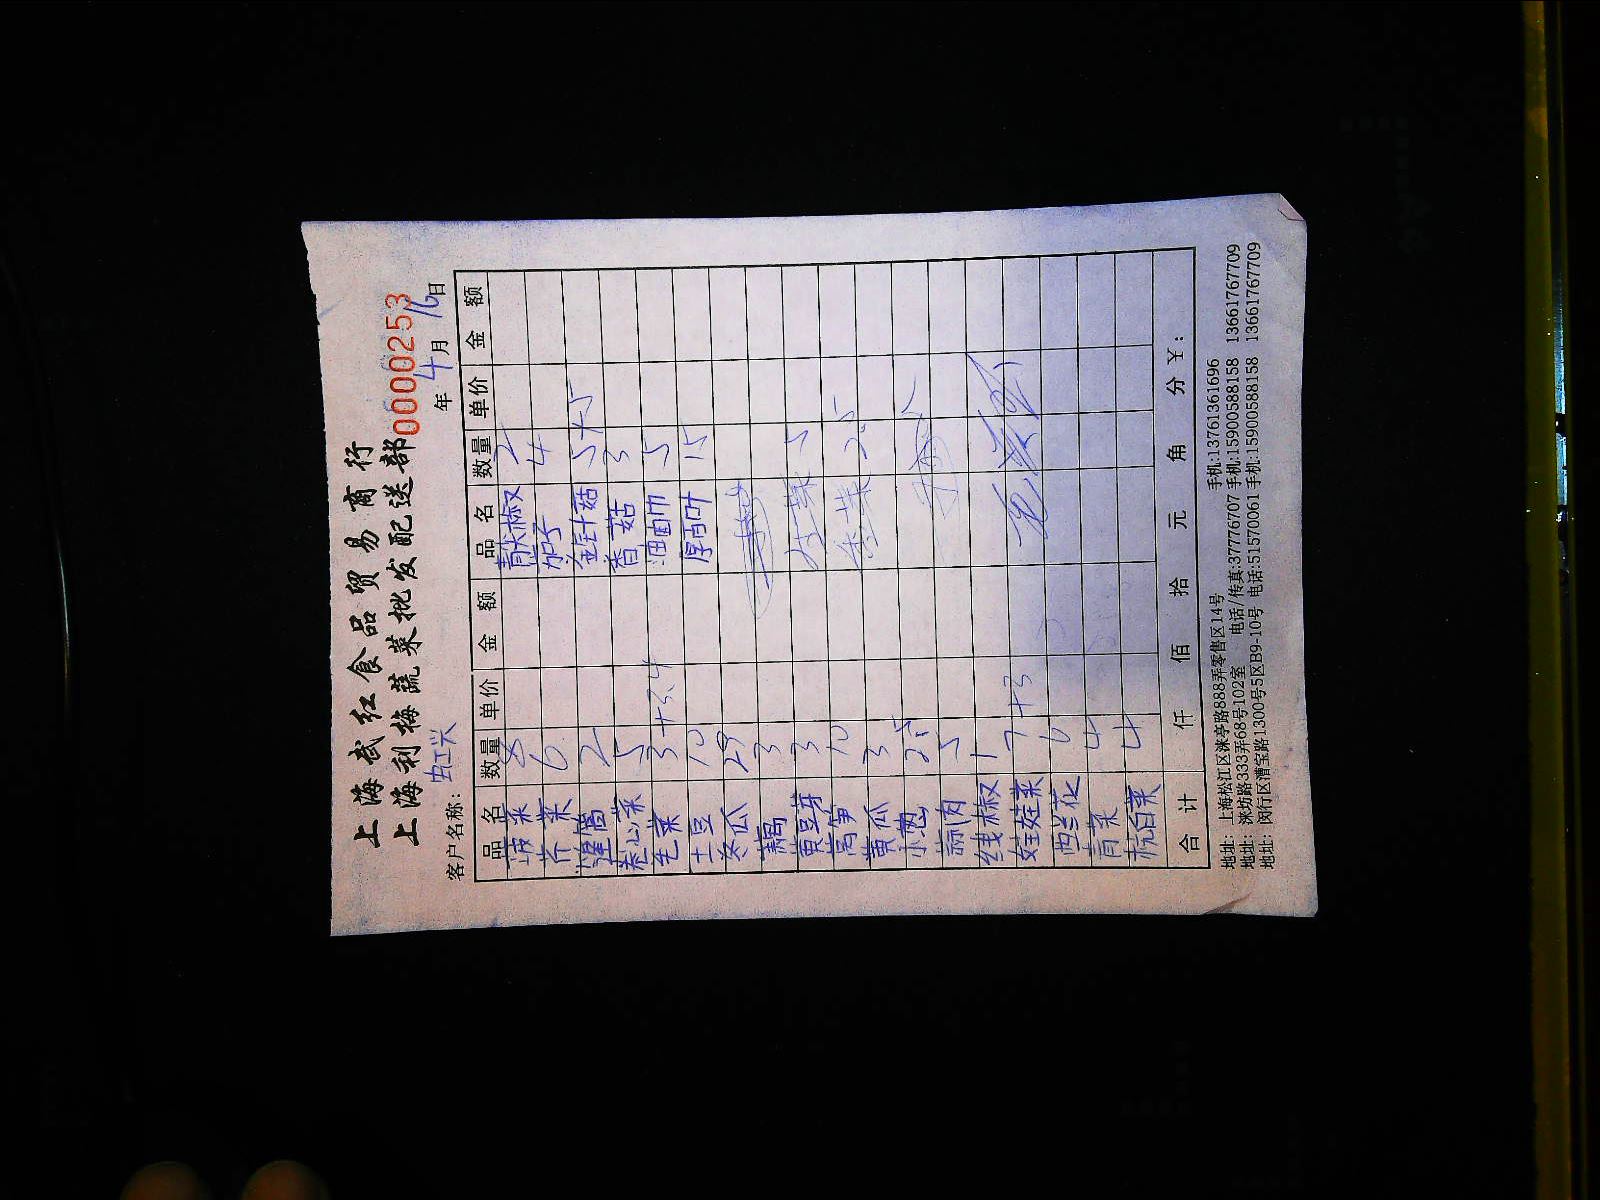 上海武红食品贸易商行
上海利梅蔬菜批发配送部
0000253
客户名称: 虹兴 年 4 月 16 日
品 名 数量 单价 金 额 品 名 数量 单价 金 额
菠菜 8 青大椒 2
芹菜 6 茄子 4
2 金针菇 5+5
卷心菜 5 香菇 3
毛菜 3 +3.4 油面巾 5
土豆 10 厚百叶 15
冬瓜 29
3
黄豆芽 3 5
莴笋 10
黄瓜 3
小葱
蒜肉 5
线椒 1
娃娃菜 7 +3
西兰花 6
青菜 4
杭白菜 4
合 计 仟 佰 拾 元 角 分 ¥:
地址: 上海松江区涞亭路888弄零售区14号 手机:13761361696
地址: 涞坊路333弄68号102室 电话/传真:37776707 手机:15900588158 13661767709
地址: 闵行区漕宝路1300号5区B9-10号 电话:51570061 手机:15900588158 13661767709